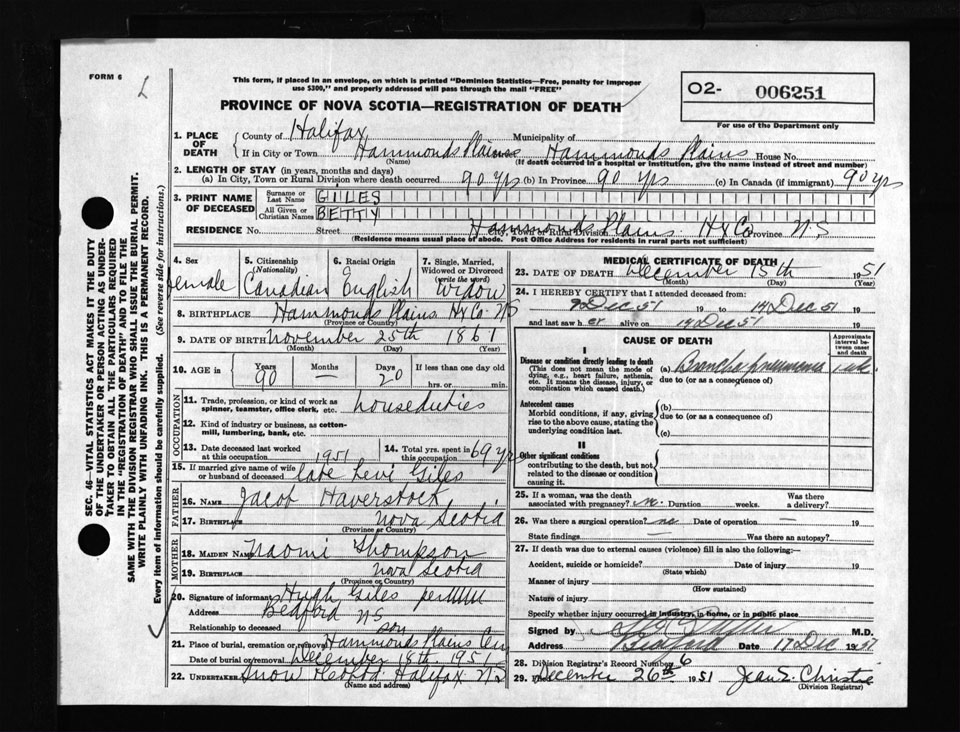 FORM 6
L
This form, if placed in an envelope, on which is printed "Dominion Statistics—Free, penalty for improper
use $300," and properly addressed will pass through the mail "FREE"
PROVINCE OF NOVA SCOTIA—REGISTRATION OF DEATH
O2- 006251
For use of the Department only
1. PLACE OF DEATH
County of Halifax Municipality of
If in City or Town Hammonds Plains Hammonds Plains House No.
(Name) (If death occurred in a hospital or institution, give the name instead of street and number)
2. LENGTH OF STAY (in years, months and days)
(a) In City, Town or Rural Division where death occurred 90 yrs (b) In Province 90 yrs (c) In Canada (if immigrant) 90 yrs
3. PRINT NAME OF DECEASED
Surname or Last Name GILES
All Given or Christian Names BETTY
RESIDENCE No. Street Hammonds Plains Hx Co Province N.S
City, Town or Rural Division
(Residence means usual place of abode. Post Office Address for residents in rural parts not sufficient)
4. Sex female
5. Citizenship (Nationality) Canadian
6. Racial Origin English
7. Single, Married, Widowed or Divorced (write the word) Widow
8. BIRTHPLACE Hammonds Plains Hx Co NS
(Province or Country)
9. DATE OF BIRTH November 25th 1861
(Month) (Day) (Year)
10. AGE in Years 90 Months — Days 20 If less than one day old
hrs. or min.
OCCUPATION
11. Trade, profession, or kind of work as
spinner, teamster, office clerk, etc. houseduties
12. Kind of industry or business, as cotton-
mill, lumbering, bank, etc.
13. Date deceased last worked at this occupation 1951
14. Total yrs. spent in this occupation 69 yrs
15. If married give name of wife or husband of deceased late Levi Giles
FATHER
16. NAME Jacob Haverstock
17. BIRTHPLACE Nova Scotia
(Province or Country)
MOTHER
18. MAIDEN NAME Naomi Thompson
19. BIRTHPLACE Nova Scotia
(Province or Country)
20. Signature of informant Hugh Giles per
Address Bedford N.S
Relationship to deceased son
21. Place of burial, cremation or removal Hammonds Plains
Date of burial or removal December 18th 1951
22. UNDERTAKER Snow Halifax N.S
(Name and address)
MEDICAL CERTIFICATE OF DEATH
23. DATE OF DEATH December 15th 1951
(Month) (Day) (Year)
24. I HEREBY CERTIFY that I attended deceased from:
9 Dec 51 19 to 14 Dec 51 19
and last saw h er alive on 14 Dec 51 19
CAUSE OF DEATH
Approximate interval between onset and death
I
Disease or condition directly leading to death
(This does not mean the mode of
dying, e.g., heart failure, asthenia,
etc. It means the disease, injury, or
complication which caused death.)
(a) Bronchopneumonia 1 wk.
due to (or as a consequence of)
Antecedent causes
Morbid conditions, if any, giving
rise to the above cause, stating the
underlying condition last.
(b)
due to (or as a consequence of)
(c)
II
Other significant conditions
contributing to the death, but not
related to the disease or condition
causing it.
25. If a woman, was the death
associated with pregnancy? no. Duration weeks. Was there a delivery?
26. Was there a surgical operation? no Date of operation —
State findings — Was there an autopsy?
27. If death was due to external causes (violence) fill in also the following:—
Accident, suicide or homicide? Date of injury 19
(State which)
Manner of injury
(How sustained)
Nature of injury
Specify whether injury occurred in industry, in home, or in public place
Signed by M.D.
Address Bedford Date 17 Dec 19
28. Division Registrar's Record Number 6
29. December 26th 1951 Jean E. Christie
(Division Registrar)
SEC. 46—VITAL STATISTICS ACT MAKES IT THE DUTY
OF THE UNDERTAKER OR PERSON ACTING AS UNDER-
TAKER TO OBTAIN ALL THE PARTICULARS REQUIRED
IN THE "REGISTRATION OF DEATH" AND TO FILE THE
SAME WITH THE DIVISION REGISTRAR WHO SHALL ISSUE THE BURIAL PERMIT.
WRITE PLAINLY WITH UNFADING INK. THIS IS A PERMANENT RECORD.
Every item of information should be carefully supplied. (See reverse side for instructions.)